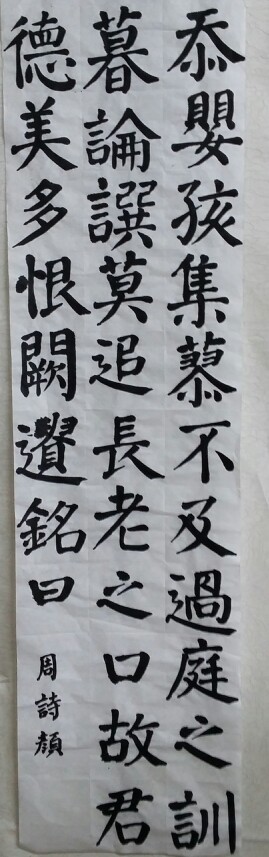 忝嬰孩集蓼不及過庭之訓
暮論譔莫追長老之口故君
德美多恨闕遺銘曰
周詩顏